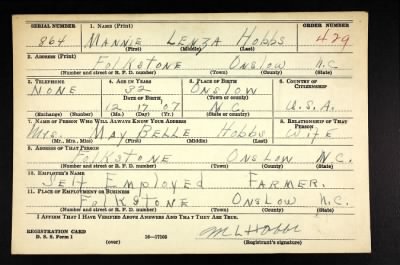 SERIAL NUMBER 1. NAME (Print) ORDER NUMBER
864 MANNIE LENZA HOBBS 429
(First) (Middle) (Last)
2. ADDRESS (Print)
FOLKSTONE ONSLOW N.C
(Number and street or R. F. D. number) (Town) (County) (State)
3. TELEPHONE 4. AGE IN YEARS 5. PLACE OF BIRTH 6. COUNTRY OF CITIZENSHIP
NONE 32 ONSLOW
DATE OF BIRTH (Town or county)
12 17 07 N.C. U.S.A.
(Exchange) (Number) (Mo.) (Day) (Yr.) (State or country)
7. NAME OF PERSON WHO WILL ALWAYS KNOW YOUR ADDRESS 8. RELATIONSHIP OF THAT PERSON
MRS. MAY BELLE HOBBS WIFE
(Mr., Mrs., Miss) (First) (Middle) (Last)
9. ADDRESS OF THAT PERSON
FOLKSTONE ONSLOW N.C.
(Number and street or R. F. D. number) (Town) (County) (State)
10. EMPLOYER'S NAME
SELF EMPLOYED FARMER.
11. PLACE OF EMPLOYMENT OR BUSINESS
FOLKSTONE ONSLOW N.C.
(Number and street or R. F. D. number) (Town) (County) (State)
I AFFIRM THAT I HAVE VERIFIED ABOVE ANSWERS AND THAT THEY ARE TRUE.
REGISTRATION CARD M L Hobbs
D. S. S. Form 1 16—17105 (Registrant's signature)
(over)